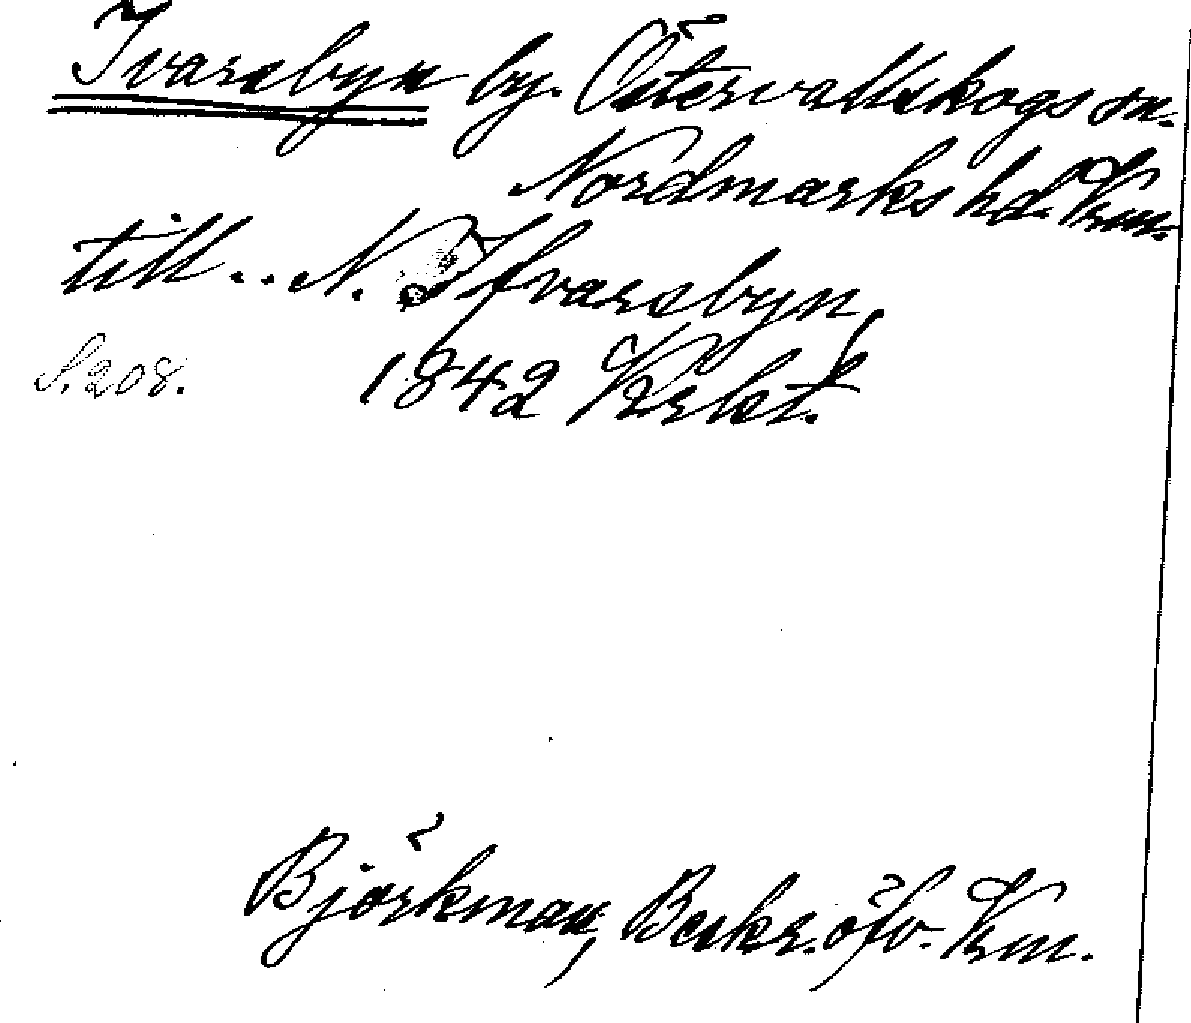 Ivarsbyn by. Östervallskogs sn.
Nordmarks hd. Vrm.
till .. N. Ifvarsbyn
S. 208. 1842 Krkt.
Björkman, Beskr. öfv. Vrm.